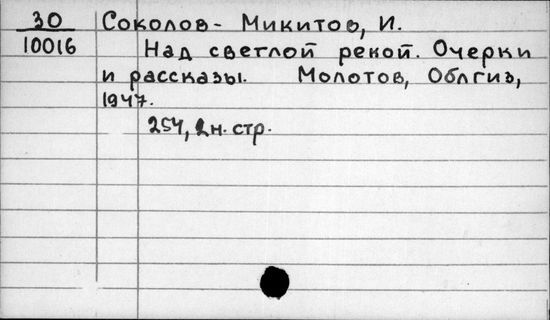 30 Соколов- Микитов, И.
10016 Над светлой рекой. Очерки
и рассказы. Молотов, Облгиз,
1947.
254, 2н. стр.